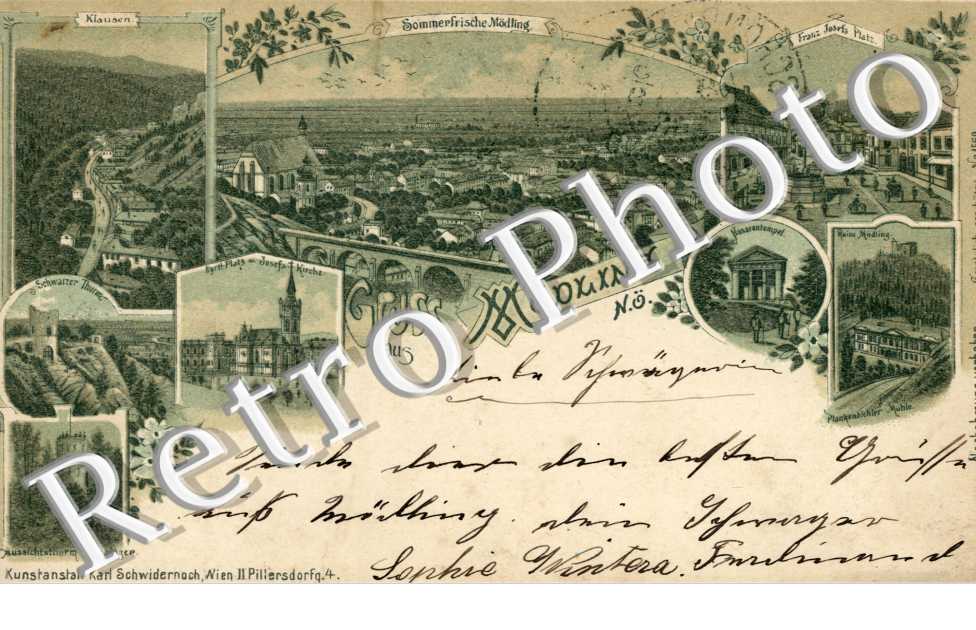 Klausen.
Sommerfrische Mödling.
Franz Josefs Platz.
Schwarzer Thurm.
Josefs Kirche.
Husarentempel.
Ruine Mödling.
Gruss
aus
Mödling
N.Ö.
Plankenbichler Mühle.
Aussichtsthurm
Liebe Schwägerin
Sende dier die besten Grüsse
auß Mödling. dein Schwager
Sophie Wintera. Ferdinand
Kunstanstalt Karl Schwidernoch, Wien II Pillersdorfg. 4.
Retro Photo